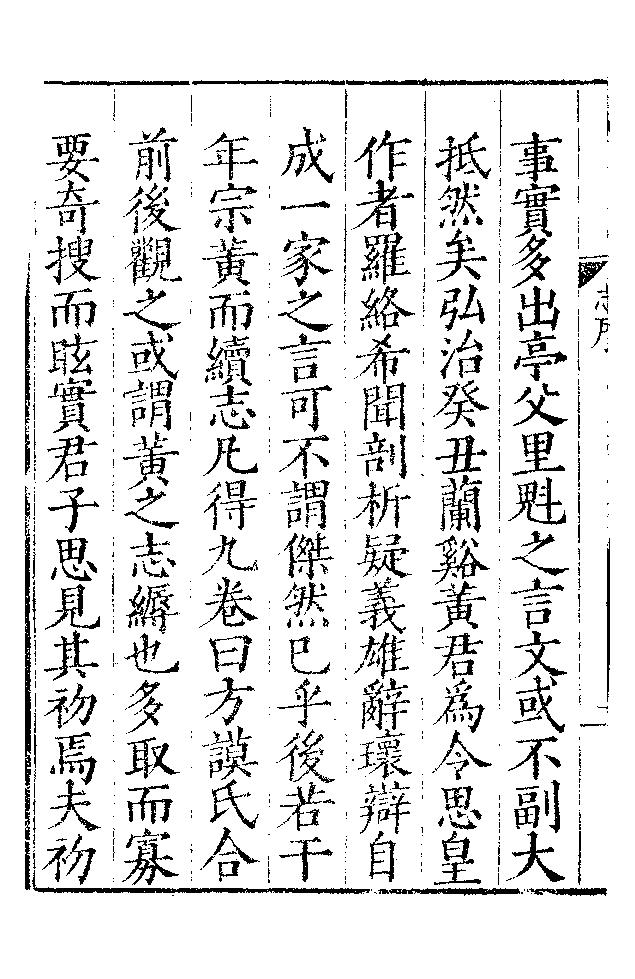 事實多出亭父里魁之言文或不副大
抵然矣弘治癸丑蘭谿黃君爲令思皇
作者羅絡希聞剖析疑義雄辭瓌辯自
成一家之言可不謂傑然已乎後若干
年宗黃而續志凡得九卷曰方謨氏合
前後觀之或謂黃之志縟也多取而寡
要奇搜而眩實君子思見其初焉夫初